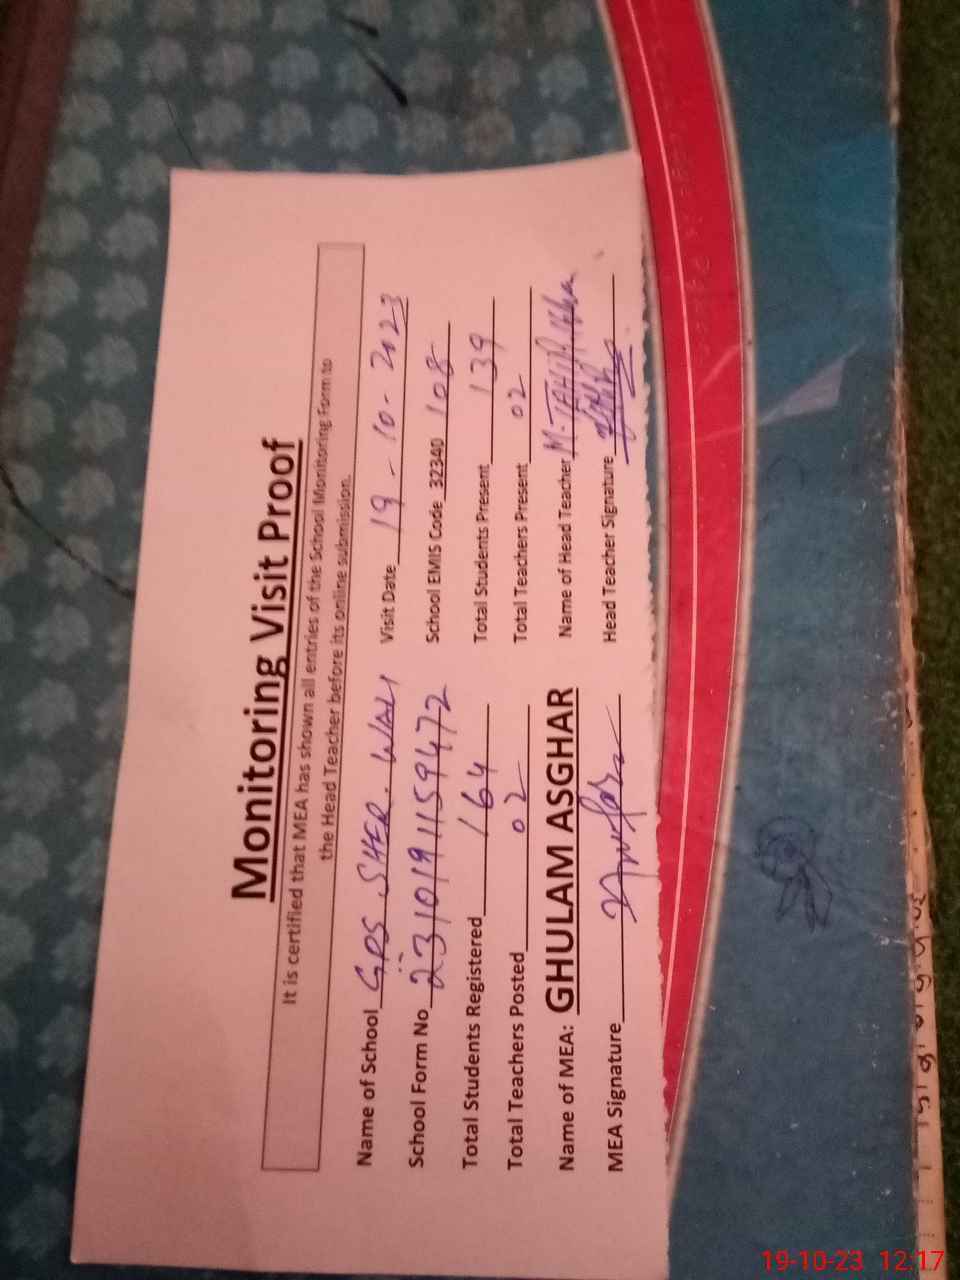 Monitoring Visit Proof
It is certified that MEA has shown all entries of the School Monitoring Form to
the Head Teacher before its online submission.
Name of School GPS SHER. WALI Visit Date 19-10-2023
School Form No. 2310191159472 School EMIS Code 32340 108
Total Students Registered 164 Total Students Present 139
Total Teachers Posted 02 Total Teachers Present 02
Name of MEA: GHULAM ASGHAR Name of Head Teacher M-TAHIR
MEA Signature Head Teacher Signature
19-10-23 12:17